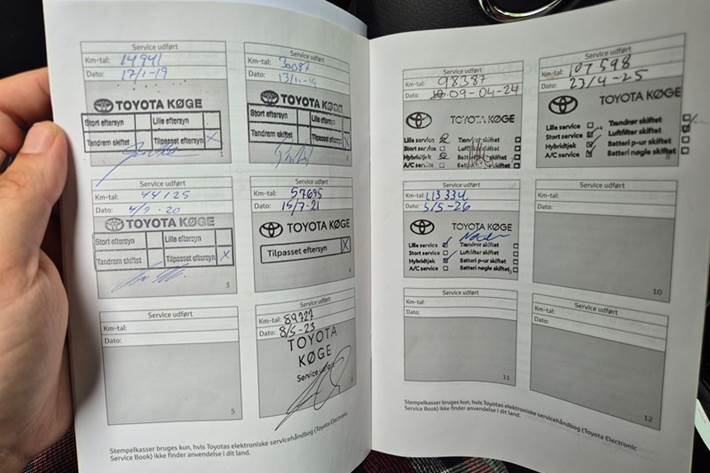 Service udført
Km-tal: 14941
Dato: 17/1-19
TOYOTA KØGE
Stort eftersyn Lille eftersyn
Tandrem skiftet Tilpasset eftersyn X
1
Service udført
Km-tal: 30081
Dato: 13/11-19
TOYOTA KØGE
Stort eftersyn Lille eftersyn
Tandrem skiftet Tilpasset eftersyn X
Service udført
Km-tal: 44125
Dato: 4/9-20
TOYOTA KØGE
Stort eftersyn Lille eftersyn
Tandrem skiftet Tilpasset eftersyn X
3
Service udført
Km-tal: 57695
Dato: 15/7-21
TOYOTA KØGE
Tilpasset eftersyn X
4
Service udført
Km-tal:
Dato:
5
Service udført
Km-tal: 89727
Dato: 8/5-23
TOYOTA
KØGE
Service udført
Service udført
Km-tal: 98387
Dato: 09-04-24
TOYOTA KØGE
Lille service Tændrør skiftet
Stort service
Hybridtjek
A/C service
Service udført
Km-tal: 107598
Dato: 23/4-25
TOYOTA KØGE
Lille service Tændrør skiftet
Stort service Luftfilter skiftet
Hybridtjek Batteri p-ur skiftet
A/C service Batteri nøgle skiftet
Service udført
Km-tal: 113334
Dato: 5/5-26
TOYOTA KØGE
Lille service Tændrør skiftet
Stort service Luftfilter skiftet
Hybridtjek Batteri p-ur skiftet
A/C service Batteri nøgle skiftet
Service udført
Km-tal:
Dato:
10
Service udført
Km-tal:
Dato:
11
Service udført
Km-tal:
Dato:
12
Stempelkasser bruges kun, hvis Toyotas elektroniske servicehåndbog (Toyota Electronic
Service Book) ikke finder anvendelse i dit land.
Stempelkasser bruges kun, hvis Toyotas elektroniske servicehåndbog (Toyota Electronic
Service Book) ikke finder anvendelse i dit land.